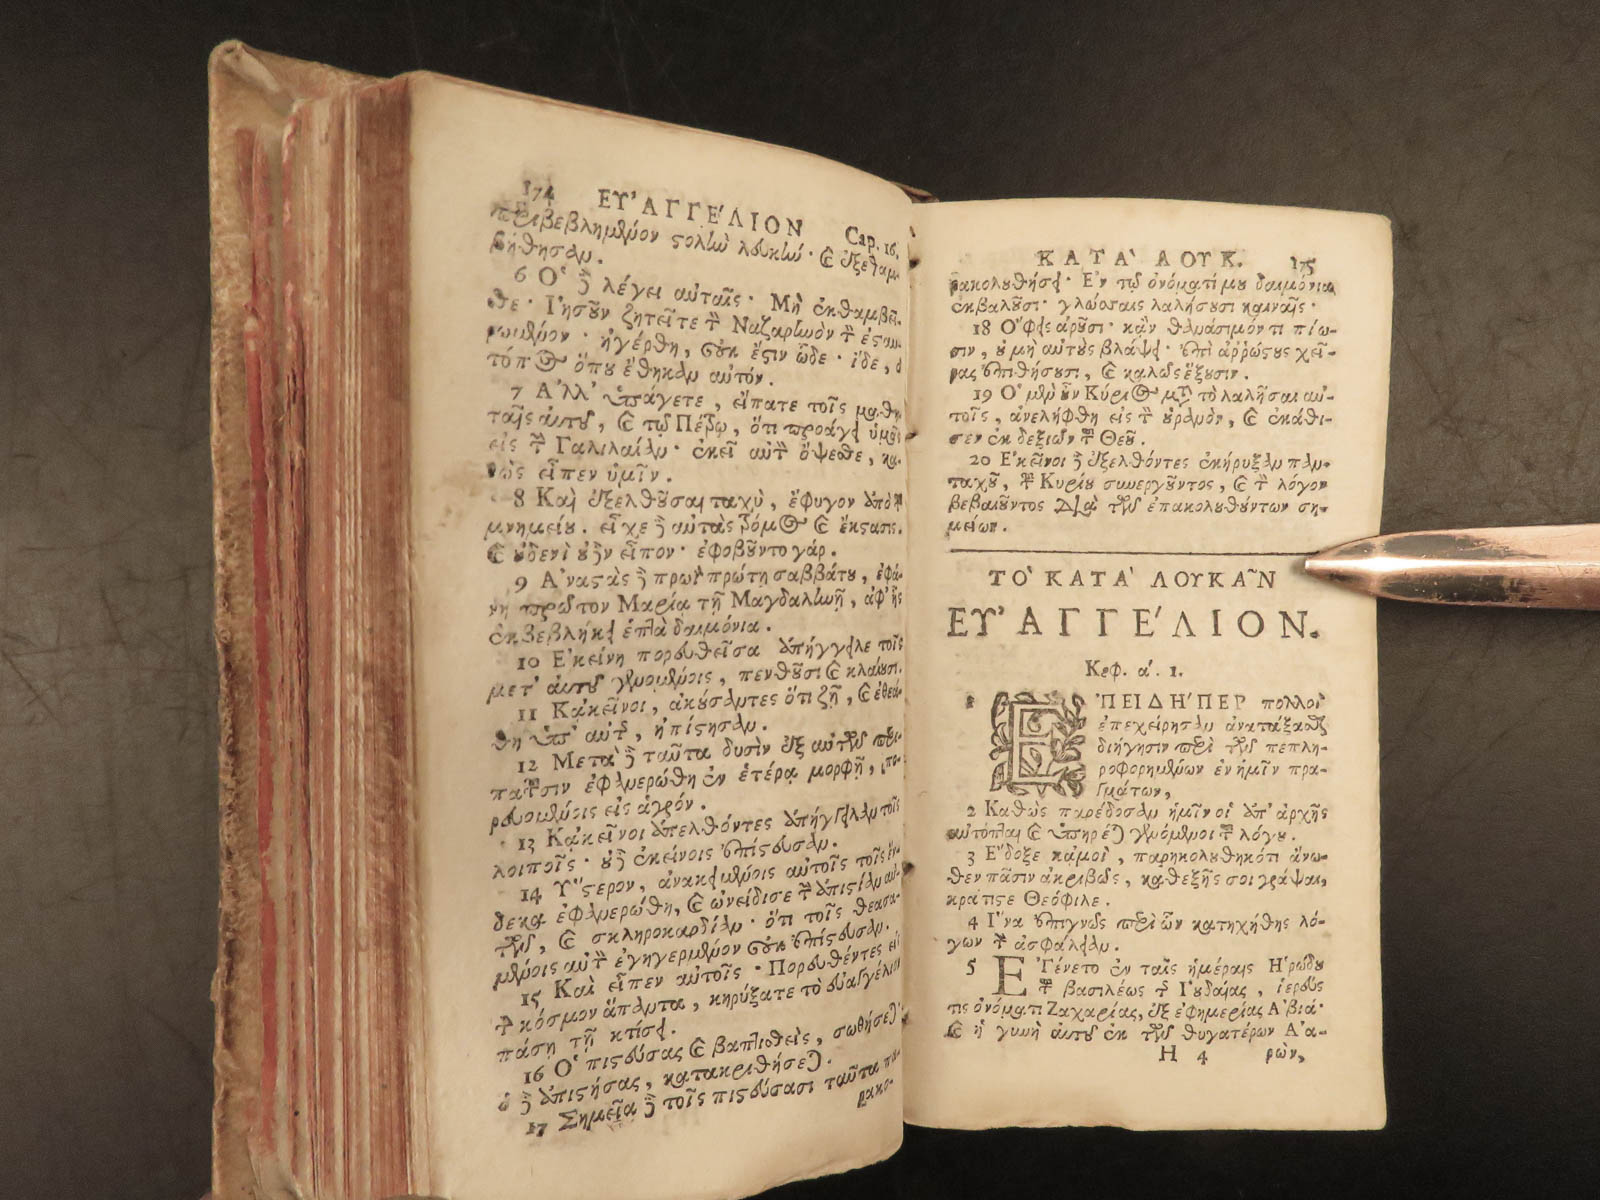 174 ΕΥ᾿ΑΓΓΕ´ΛΙΟΝ Cap. 16.
περιβεβλημένον στολὴν λευκήν· καὶ ἐξεθαμ-
βήθησαν.
6 Ὁ δὲ λέγει αὐταῖς· Μὴ ἐκθαμβεῖ-
σθε· Ἰησοῦν ζητεῖτε τὸν Ναζαρηνὸν τὸν ἐσταυ-
ρωμένον· ἠγέρθη, οὐκ ἔστιν ὧδε· ἴδε, ὁ
τόπος ὅπου ἔθηκαν αὐτόν.
7 Ἀλλ᾿ ὑπάγετε, εἴπατε τοῖς μαθη-
ταῖς αὐτοῦ, καὶ τῷ Πέτρῳ, ὅτι προάγει ὑμᾶς
εἰς τὴν Γαλιλαίαν· ἐκεῖ αὐτὸν ὄψεσθε, κα-
θὼς εἶπεν ὑμῖν.
8 Καὶ ἐξελθοῦσαι ταχὺ, ἔφυγον ἀπὸ τοῦ
μνημείου. εἶχε δὲ αὐτὰς τρόμος καὶ ἔκστασις.
καὶ οὐδενὶ οὐδὲν εἶπον· ἐφοβοῦντο γάρ.
9 Ἀναστὰς δὲ πρωῒ πρώτῃ σαββάτου, ἐφά-
νη πρῶτον Μαρίᾳ τῇ Μαγδαληνῇ, ἀφ᾿ ἧς
ἐκβεβλήκει ἑπτὰ δαιμόνια.
10 Ἐκείνη πορευθεῖσα ἀπήγγειλε τοῖς
μετ᾿ αὐτοῦ γενομένοις, πενθοῦσι καὶ κλαίουσι.
11 Κἀκεῖνοι, ἀκούσαντες ὅτι ζῇ, καὶ ἐθεά-
θη ὑπ᾿ αὐτῆς, ἠπίστησαν.
12 Μετὰ δὲ ταῦτα δυσὶν ἐξ αὐτῶν περι-
πατοῦσιν ἐφανερώθη ἐν ἑτέρᾳ μορφῇ, πο-
ρευομένοις εἰς ἀγρόν.
13 Κᾀκεῖνοι ἀπελθόντες ἀπήγγειλαν τοῖς
λοιποῖς· οὐδὲ ἐκείνοις ἐπίστευσαν.
14 Ὕστερον, ἀνακειμένοις αὐτοῖς τοῖς ἕν-
δεκα ἐφανερώθη, καὶ ὠνείδισε τὴν ἀπιστίαν αὐ-
τῶν, καὶ σκληροκαρδίαν· ὅτι τοῖς θεασα-
μένοις αὐτὸν ἐγηγερμένον οὐκ ἐπίστευσαν.
15 Καὶ εἶπεν αὐτοῖς· Πορευθέντες εἰς
τὸν κόσμον ἅπαντα, κηρύξατε τὸ εὐαγγέλιον
πάσῃ τῇ κτίσει.
16 Ὁ πιστεύσας καὶ βαπτισθεὶς, σωθήσεται·
ὁ δὲ ἀπιστήσας, κατακριθήσεται.
17 Σημεῖα δὲ τοῖς πιστεύσασι ταῦτα πα-
ρακο-
ΚΑΤΑ` ΛΟΥΚ. 175
ρακολουθήσει· Ἐν τῷ ὀνόματί μου δαιμόνια
ἐκβαλοῦσι· γλώσσαις λαλήσουσι καιναῖς·
18 Ὄφεις ἀροῦσι· κἂν θανάσιμόν τι πίω-
σιν, οὐ μὴ αὐτοὺς βλάψει· ἐπὶ ἀῤῥώστους χεῖ-
ρας ἐπιθήσουσι, καὶ καλῶς ἕξουσιν.
19 Ὁ μὲν οὖν Κύριος μετὰ τὸ λαλῆσαι αὐ-
τοῖς, ἀνελήφθη εἰς τὸν οὐρανὸν, καὶ ἐκάθι-
σεν ἐκ δεξιῶν τοῦ Θεοῦ.
20 Ἐκεῖνοι δὲ ἐξελθόντες ἐκήρυξαν παν-
ταχοῦ, τοῦ Κυρίου συνεργοῦντος, καὶ τὸν λόγον
βεβαιοῦντος διὰ τῶν ἐπακολουθούντων ση-
μείων.
ΤΟ` ΚΑΤΑ` ΛΟΥΚΑ῀Ν
ΕΥ᾿ΑΓΓΕ´ΛΙΟΝ.
Κεφ. α´. 1.
1 ἘΠΕΙΔΗ´ΠΕΡ πολλοὶ
ἐπεχείρησαν ἀνατάξασθαι
διήγησιν περὶ τῶν πεπλη-
ροφορημένων ἐν ἡμῖν πρα-
γμάτων,
2 Καθὼς παρέδοσαν ἡμῖν οἱ ἀπ᾿ ἀρχῆς
αὐτόπται καὶ ὑπηρέται γενόμενοι τοῦ λόγου.
3 Ἔδοξε κἀμοὶ, παρηκολουθηκότι ἄνω-
θεν πᾶσιν ἀκριβῶς, καθεξῆς σοι γράψαι,
κράτιστε Θεόφιλε.
4 Ἵνα ἐπιγνῷς περὶ ὧν κατηχήθης λό-
γων τὴν ἀσφάλειαν.
5 Ἐγένετο ἐν ταῖς ἡμέραις Ἡρώδου
τοῦ βασιλέως τῆς Ἰουδαίας, ἱερεύς
τις ὀνόματι Ζαχαρίας, ἐξ ἐφημερίας Ἀβιά·
καὶ ἡ γυνὴ αὐτοῦ ἐκ τῶν θυγατέρων Ἀα-
H 4 ρὼν,